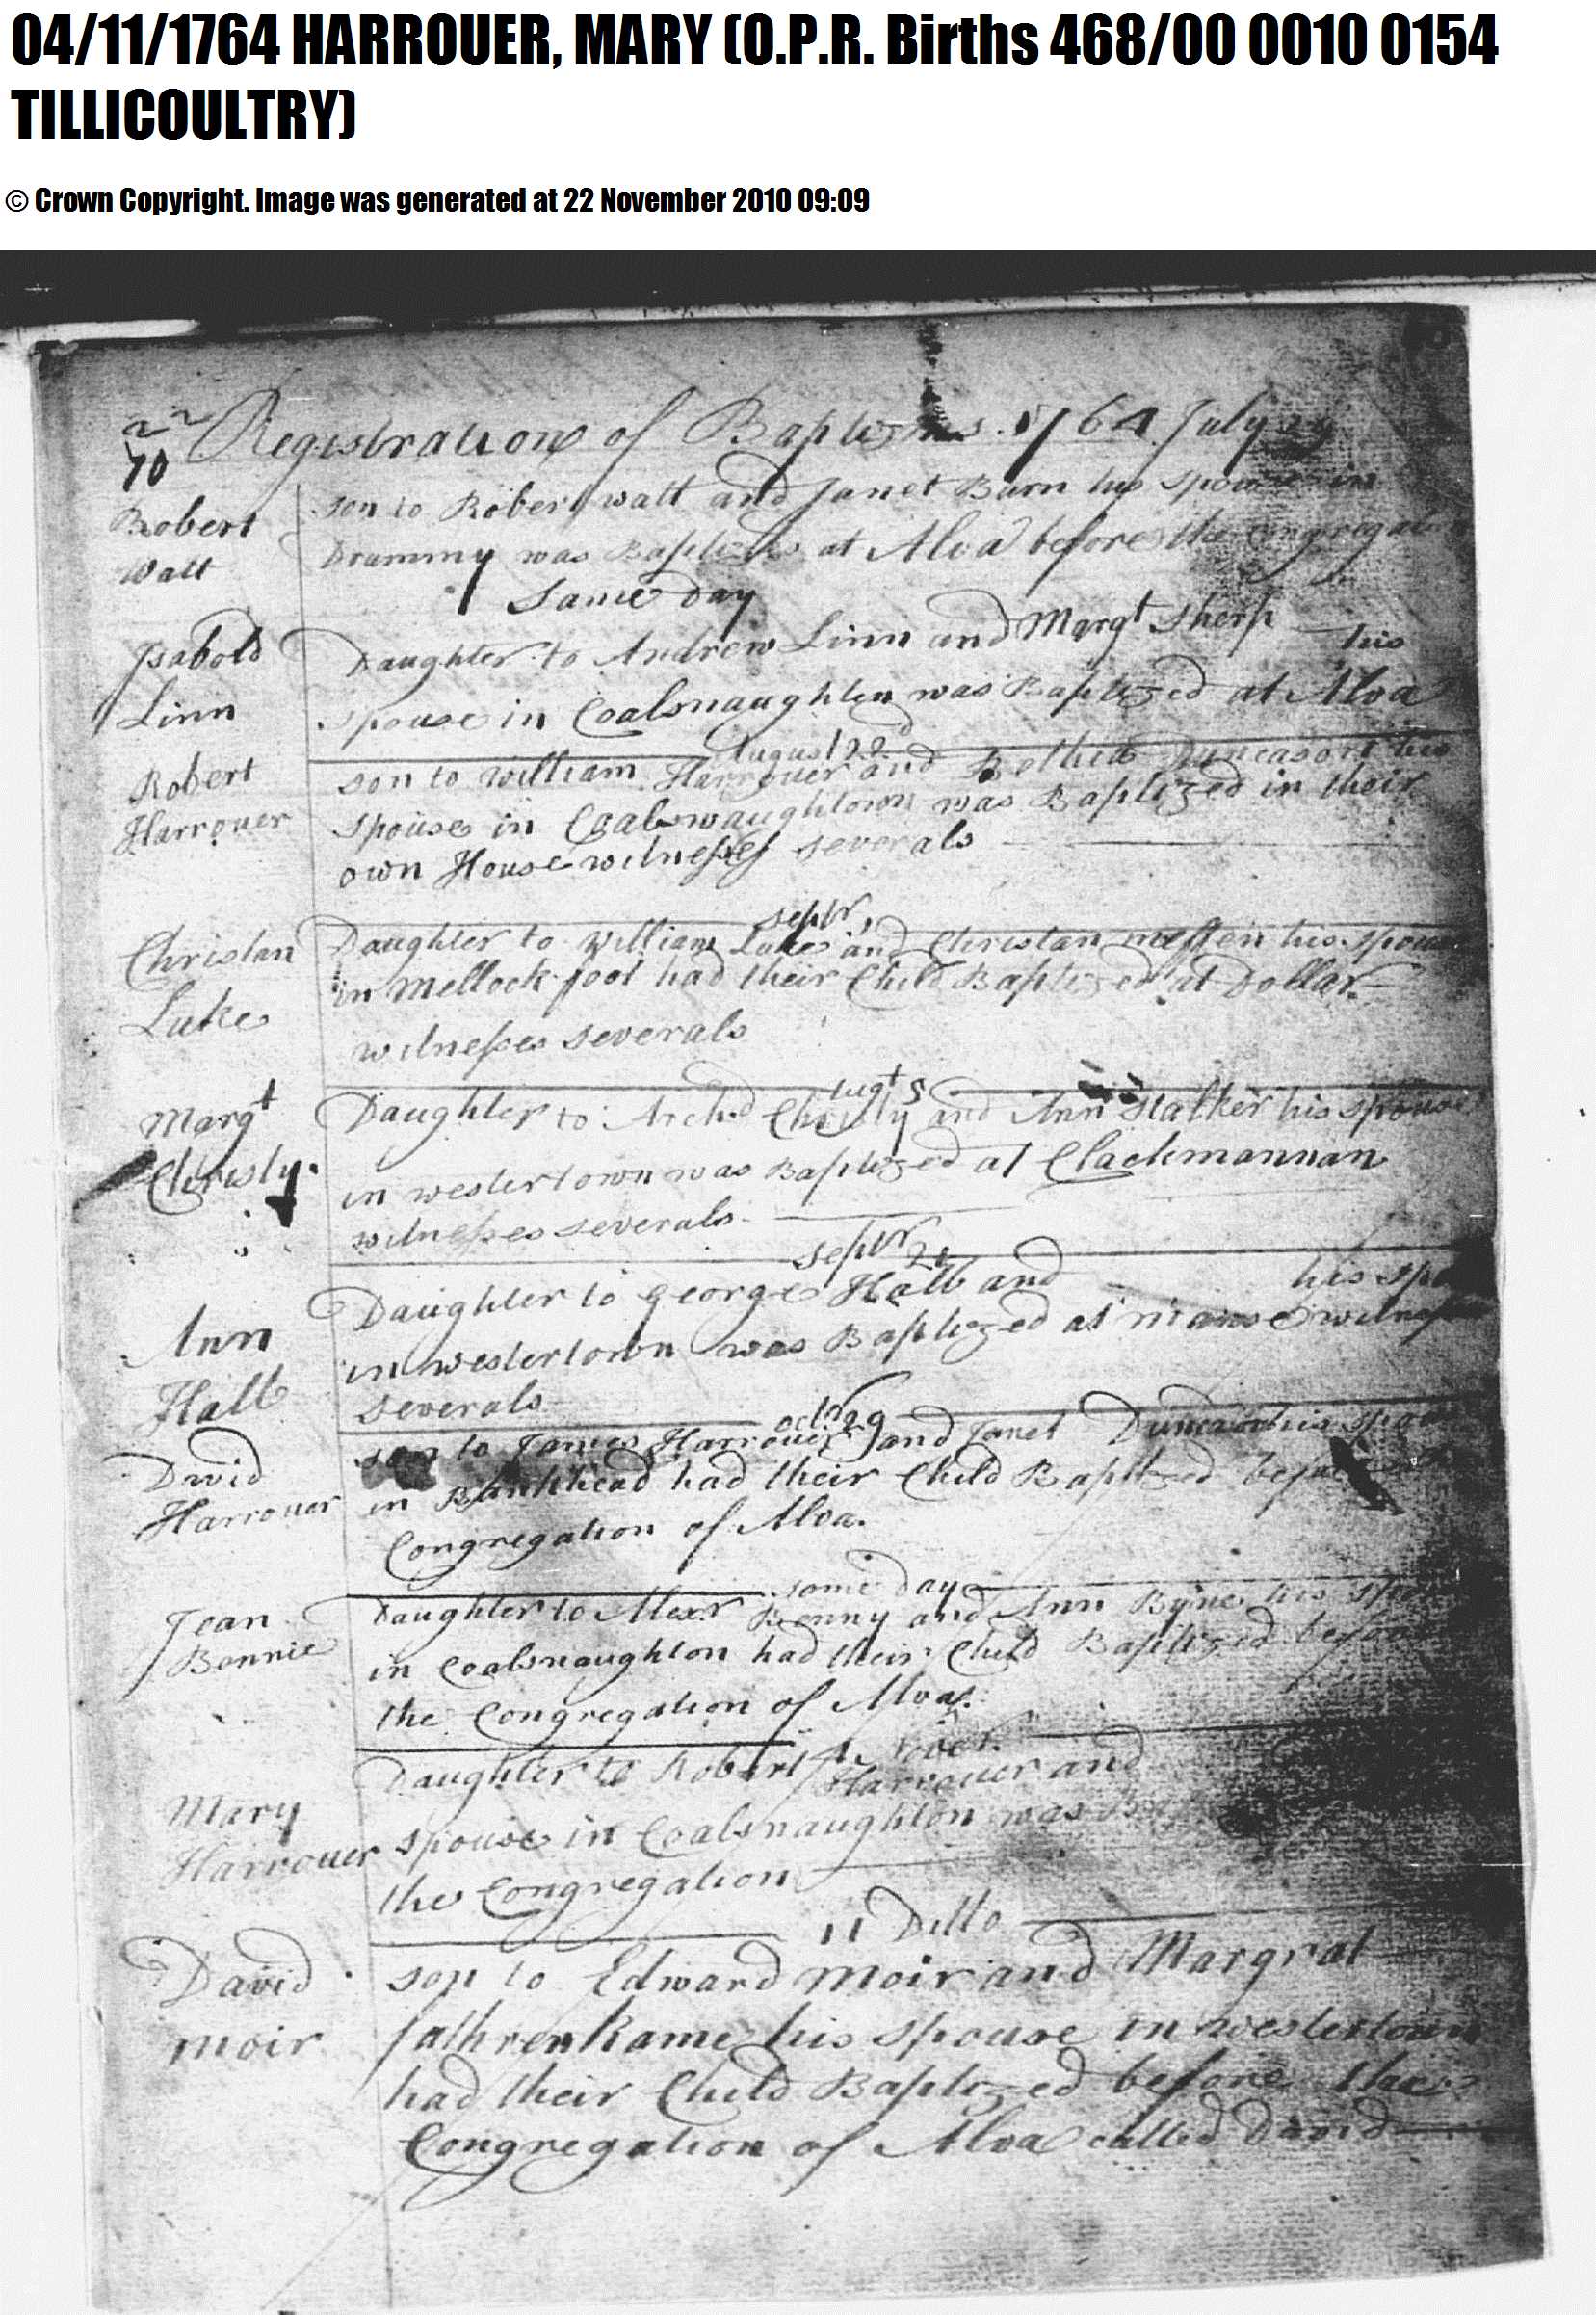 04/11/1764 HARROUER, MARY (O.P.R. Births 468/00 0010 0154
TILLICOULTRY)
© Crown Copyright. Image was generated at 22 November 2010 09:09
Registration of Baptizms 1764 July 29
10
Robert
Walt
son to Robert Walt and Janet Burn his spouse in
Drummy was Baptized at Alva before the Congregation
Same Day
Isabold
Linn
Daughter to Andrew Linn and Margt Sherp his
spouse in Coalsnaughten was Baptized at Alva
August 22d
Robert
Harrouer
son to William Harrouer and Bethia Duncason his
spouse in Coalsnaughtown was Baptized in their
own House witnesses severals
Septr
Christan
Luke
Daughter to William Luke and Christan meffen his spouse
in Mellock foot had their Child Baptized at Dollar
witnesses severals
Augt 5
Margt
Christy
Daughter to Archd Christy and Ann Stalker his spouse
in westertown was Baptized at Clackmannan
witnesses severals
Septr 21
Ann
Hall
Daughter to George Hall and his
in westertown was Baptized at manse witnesses
severals
Octr 29
David
Harrouer
son to James Harrouer and Janet Duncason his
in Bankhead had their Child Baptized before
Congregation of Alva.
same Day
Jean
Bennie
Daughter to Alexr Benny and Ann Byne his
in Coalsnaughton had their Child Baptized before
the Congregation of Alva.
4 Novr
Mary
Harrouer
Daughter to Robert Harrouer and
spouse in Coalsnaughton was
the Congregation
11 Ditto
David
moir
son to Edward moir and Margrat
his spouse in westertown
had their Child Baptized before the
Congregation of Alva called David